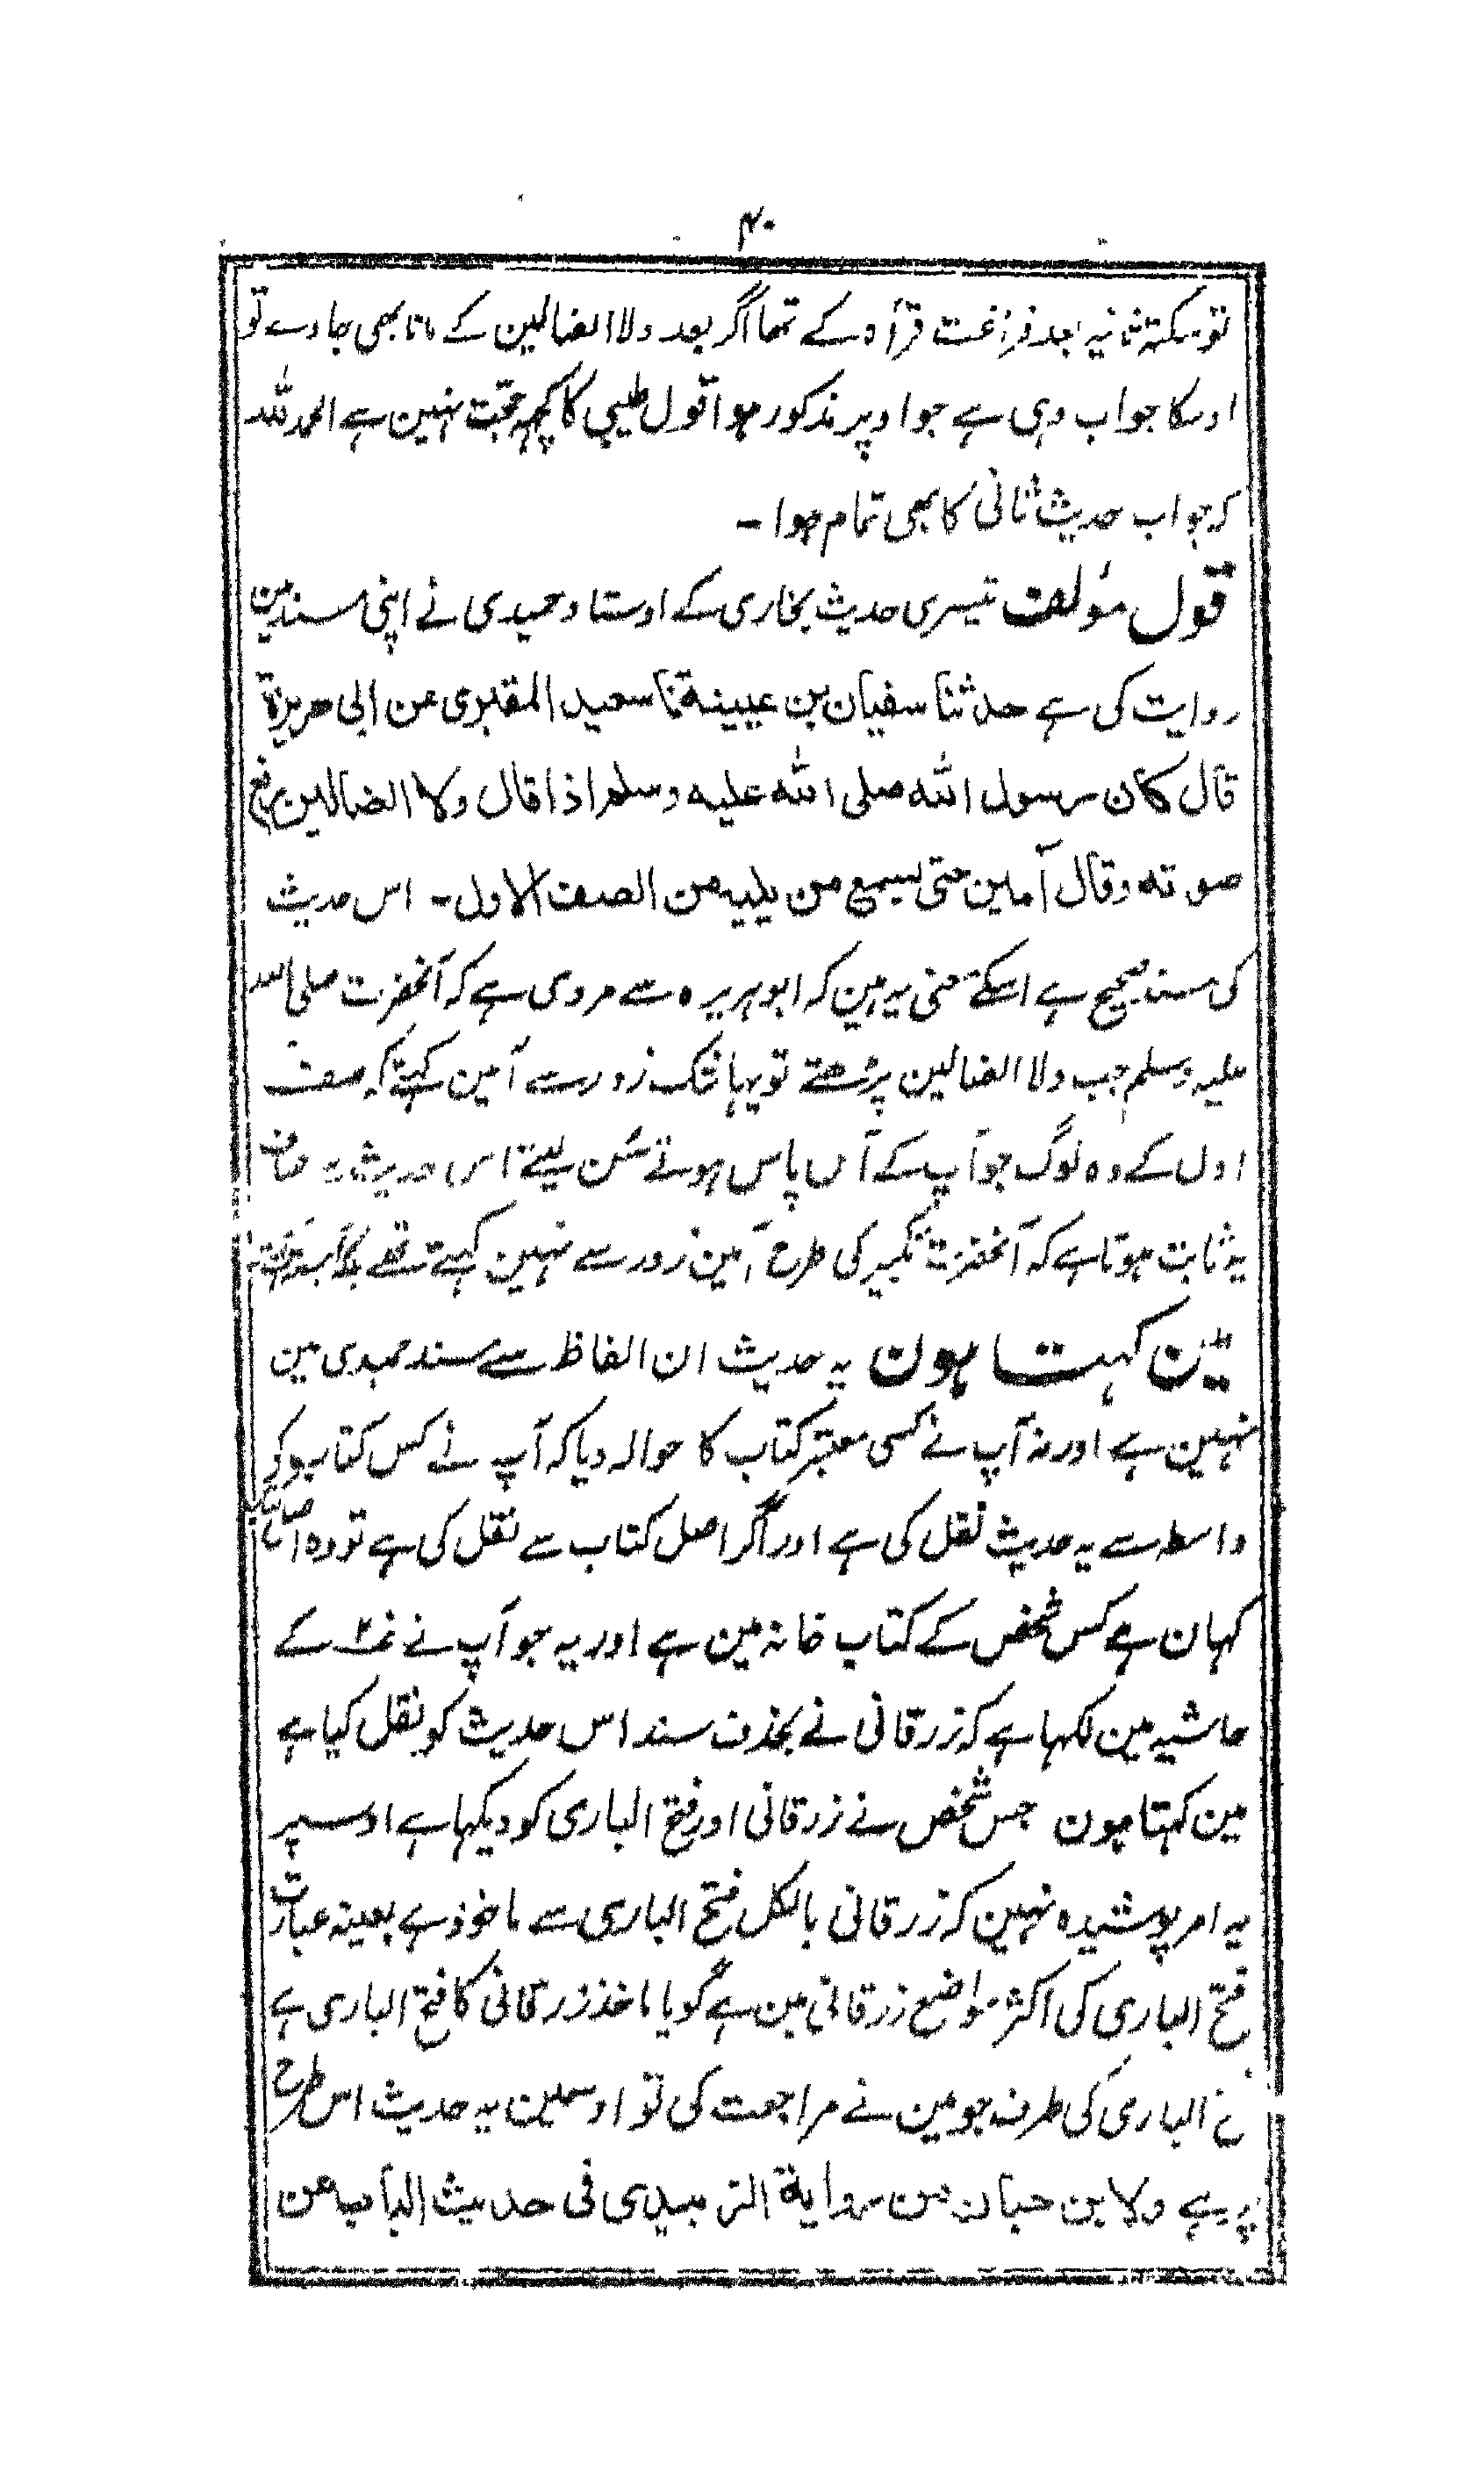 ۴۰
تو سکتہ ثانیہ بعد فراغت قرأۃ کے تھا اگر بعد ولا الضالین کے مانا بھی جاوے تو
اوسکا جواب وہی ہے جو اوپر مذکور ہوا قول طیبی کا کچہہ حجت نہین ہے الحمد للہ
کہ جواب حدیث ثانی کا بھی تمام ہوا -
قول مؤلف تیسری حدیث بخاری کے اوستاد حمیدی نے اپنی مسند مین
روایت کی ہے حدثنا سفیان بن عیینة ثنا سعید المقبری عن ابی هریرة
قال کان رسول الله صلی الله علیه وسلم اذا قال ولا الضالین رفع
صوته وقال آمین حتی یسمع من یلیه من الصف الاول - اس حدیث
کی سند صحیح ہے اسکے معنی یہ ہین کہ ابو ہریرہ سے مروی ہے کہ آنحضرت صلی اللہ
علیہ وسلم جب ولا الضالین پڑھتے تو یہانتک زور سے آمین کہتے کہ صف
اول کے وہ لوگ جو آپ کے آس پاس ہوتے سُن لیتے اس حدیث سے صاف
یہ ثابت ہوتا ہے کہ آنحضرت تکبیر کی طرح آمین زور سے نہین کہتے تھے بلکہ
مین کہتا ہون یہ حدیث ان الفاظ سے مسند حمیدی مین
نہین ہے اور نہ آپ نے کسی معتبر کتاب کا حوالہ دیا کہ آپ نے کس کتاب کے
واسطہ سے یہ حدیث نقل کی ہے اور اگر اصل کتاب سے نقل کی ہے تو وہ اصل کتاب
کہان ہے کس شخص کے کتاب خانہ مین ہے اور یہ جو آپ نے نمبر ۲ کے
حاشیہ مین لکہا ہے کہ زرقانی نے بحذف سند اس حدیث کو نقل کیا ہے
مین کہتا ہون جس شخص نے زرقانی اور فتح الباری کو دیکہا ہے اوسپر
یہ امر پوشیدہ نہین کہ زرقانی بالکل فتح الباری سے ماخوذ ہے بعینہ عبارت
فتح الباری کی اکثر مواضع زرقانی مین ہے گویا ماخذ زرقانی کا فتح الباری ہے
فتح الباری کی طرف جو مین نے مراجعت کی تو اوسمین یہ حدیث اس طرح
پر ہے ولابن حبان من روایة الزبیدی فی حدیث الباب عن